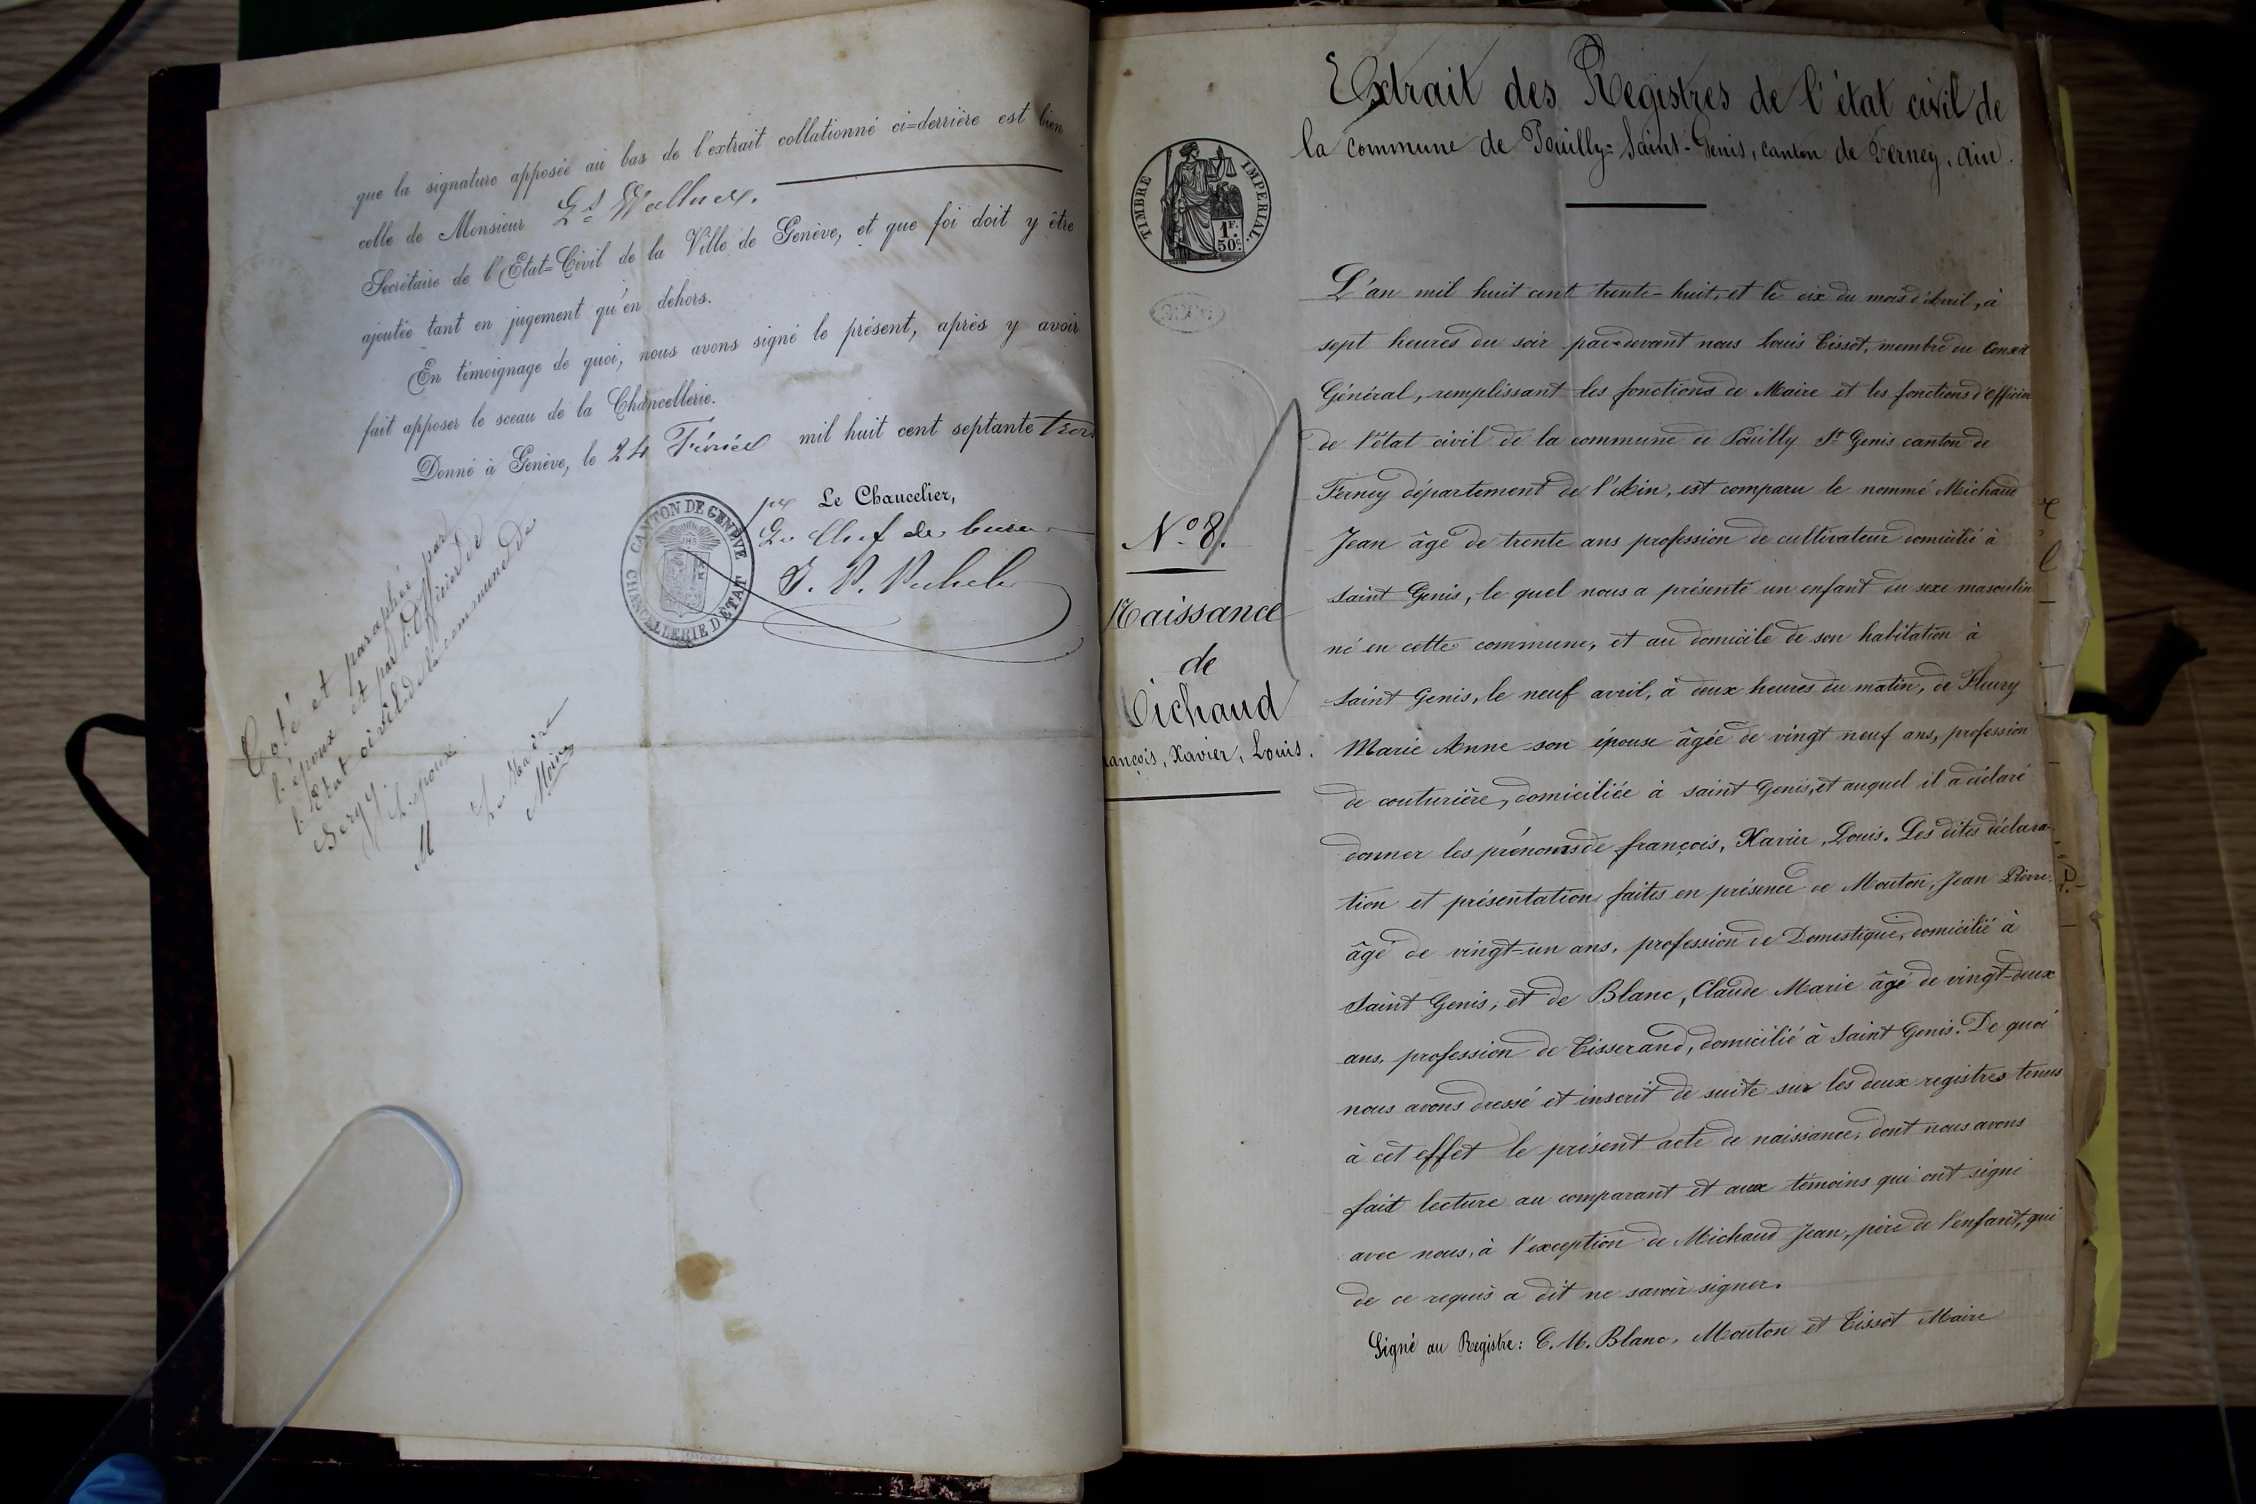 que la signature apposée au bas de l'extrait collationné ci=derrière est bien
celle de Monsieur
Secrétaire de l'Etat=Civil de la Ville de Genève, et que foi doit y être
ajoutée tant en jugement qu'en dehors.
En témoignage de quoi, nous avons signé le présent, après y avoir
fait apposer le sceau de la Chancellerie.
Donné à Genève, le 24 Février mil huit cent septante trois
Le Chancelier,
Le Chef de bureau
CANTON DE GENÈVE
CHANCELLERIE D'ETAT
Coté et paraphé par
l'époux et par l'officier de
l'Etat civil de la commune de
Sergy.
L'époux
M
Le Maire
Extrait des Registres de l'état civil de
la commune de Pouilly=Saint-Genis, canton de Ferney, ain.
TIMBRE IMPERIAL.
1F.
50c
L'an mil huit cent trente-huit, et le dix du mois d'Avril, à
sept heures du soir par-devant nous Louis Tissot, membre du Conseil
Général, remplissant les fonctions de Maire et les fonctions d'officier
de l'état civil de la commune de Pouilly St Genis canton de
Ferney département de l'Ain, est comparu le nommé Michaud
Jean âgé de trente ans profession de cultivateur domicilié à
Saint Genis, le quel nous a présenté un enfant du sexe masculin
né en cette commune, et au domicile de son habitation à
Saint Genis, le neuf avril, à deux heures du matin, de Fleury
Marie Anne son épouse âgée de vingt neuf ans, profession
de couturière, domiciliée à saint Genis, et auquel il a déclaré
donner les prénoms de françois, Xavier, Louis. Les dites déclara-
tion et présentation faites en présence de Mouton, Jean Pierre,
âgé de vingt-un ans, profession de Domestique, domicilié à
Saint Genis, et de Blanc, Claude Marie âgé de vingt-deux
ans, profession de Tisserand, domicilié à Saint Genis. De quoi
nous avons dressé et inscrit de suite sur les deux registres tenus
à cet effet le présent acte de naissance, dont nous avons
fait lecture au comparant et aux témoins qui ont signé
avec nous, à l'exception de Michaud Jean, père de l'enfant, qui
de ce requis a dit ne savoir signer.
Signé au Registre: C. M. Blanc, Mouton et Tissot Maire
No 8.
Naissance
de
ichaud
ançois, Xavier, Louis.